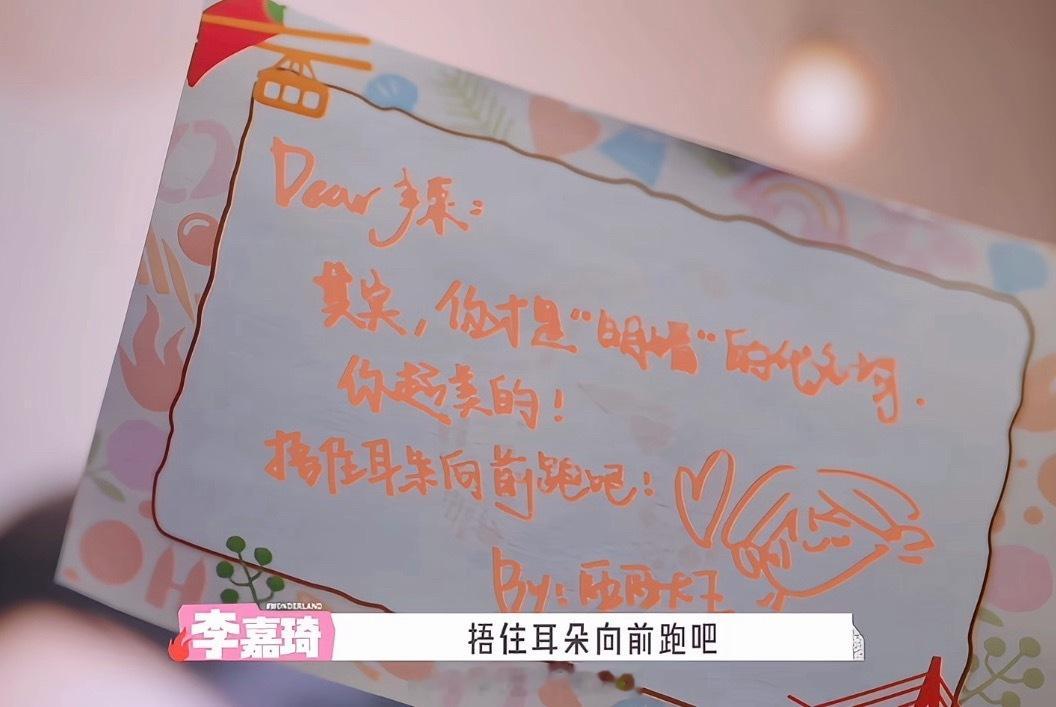 Dear
其实,你才是“明
”的代名词.
你超美的!
捂住耳朵向前跑吧!
By:
#WONDERLAND
李嘉琦
捂住耳朵向前跑吧